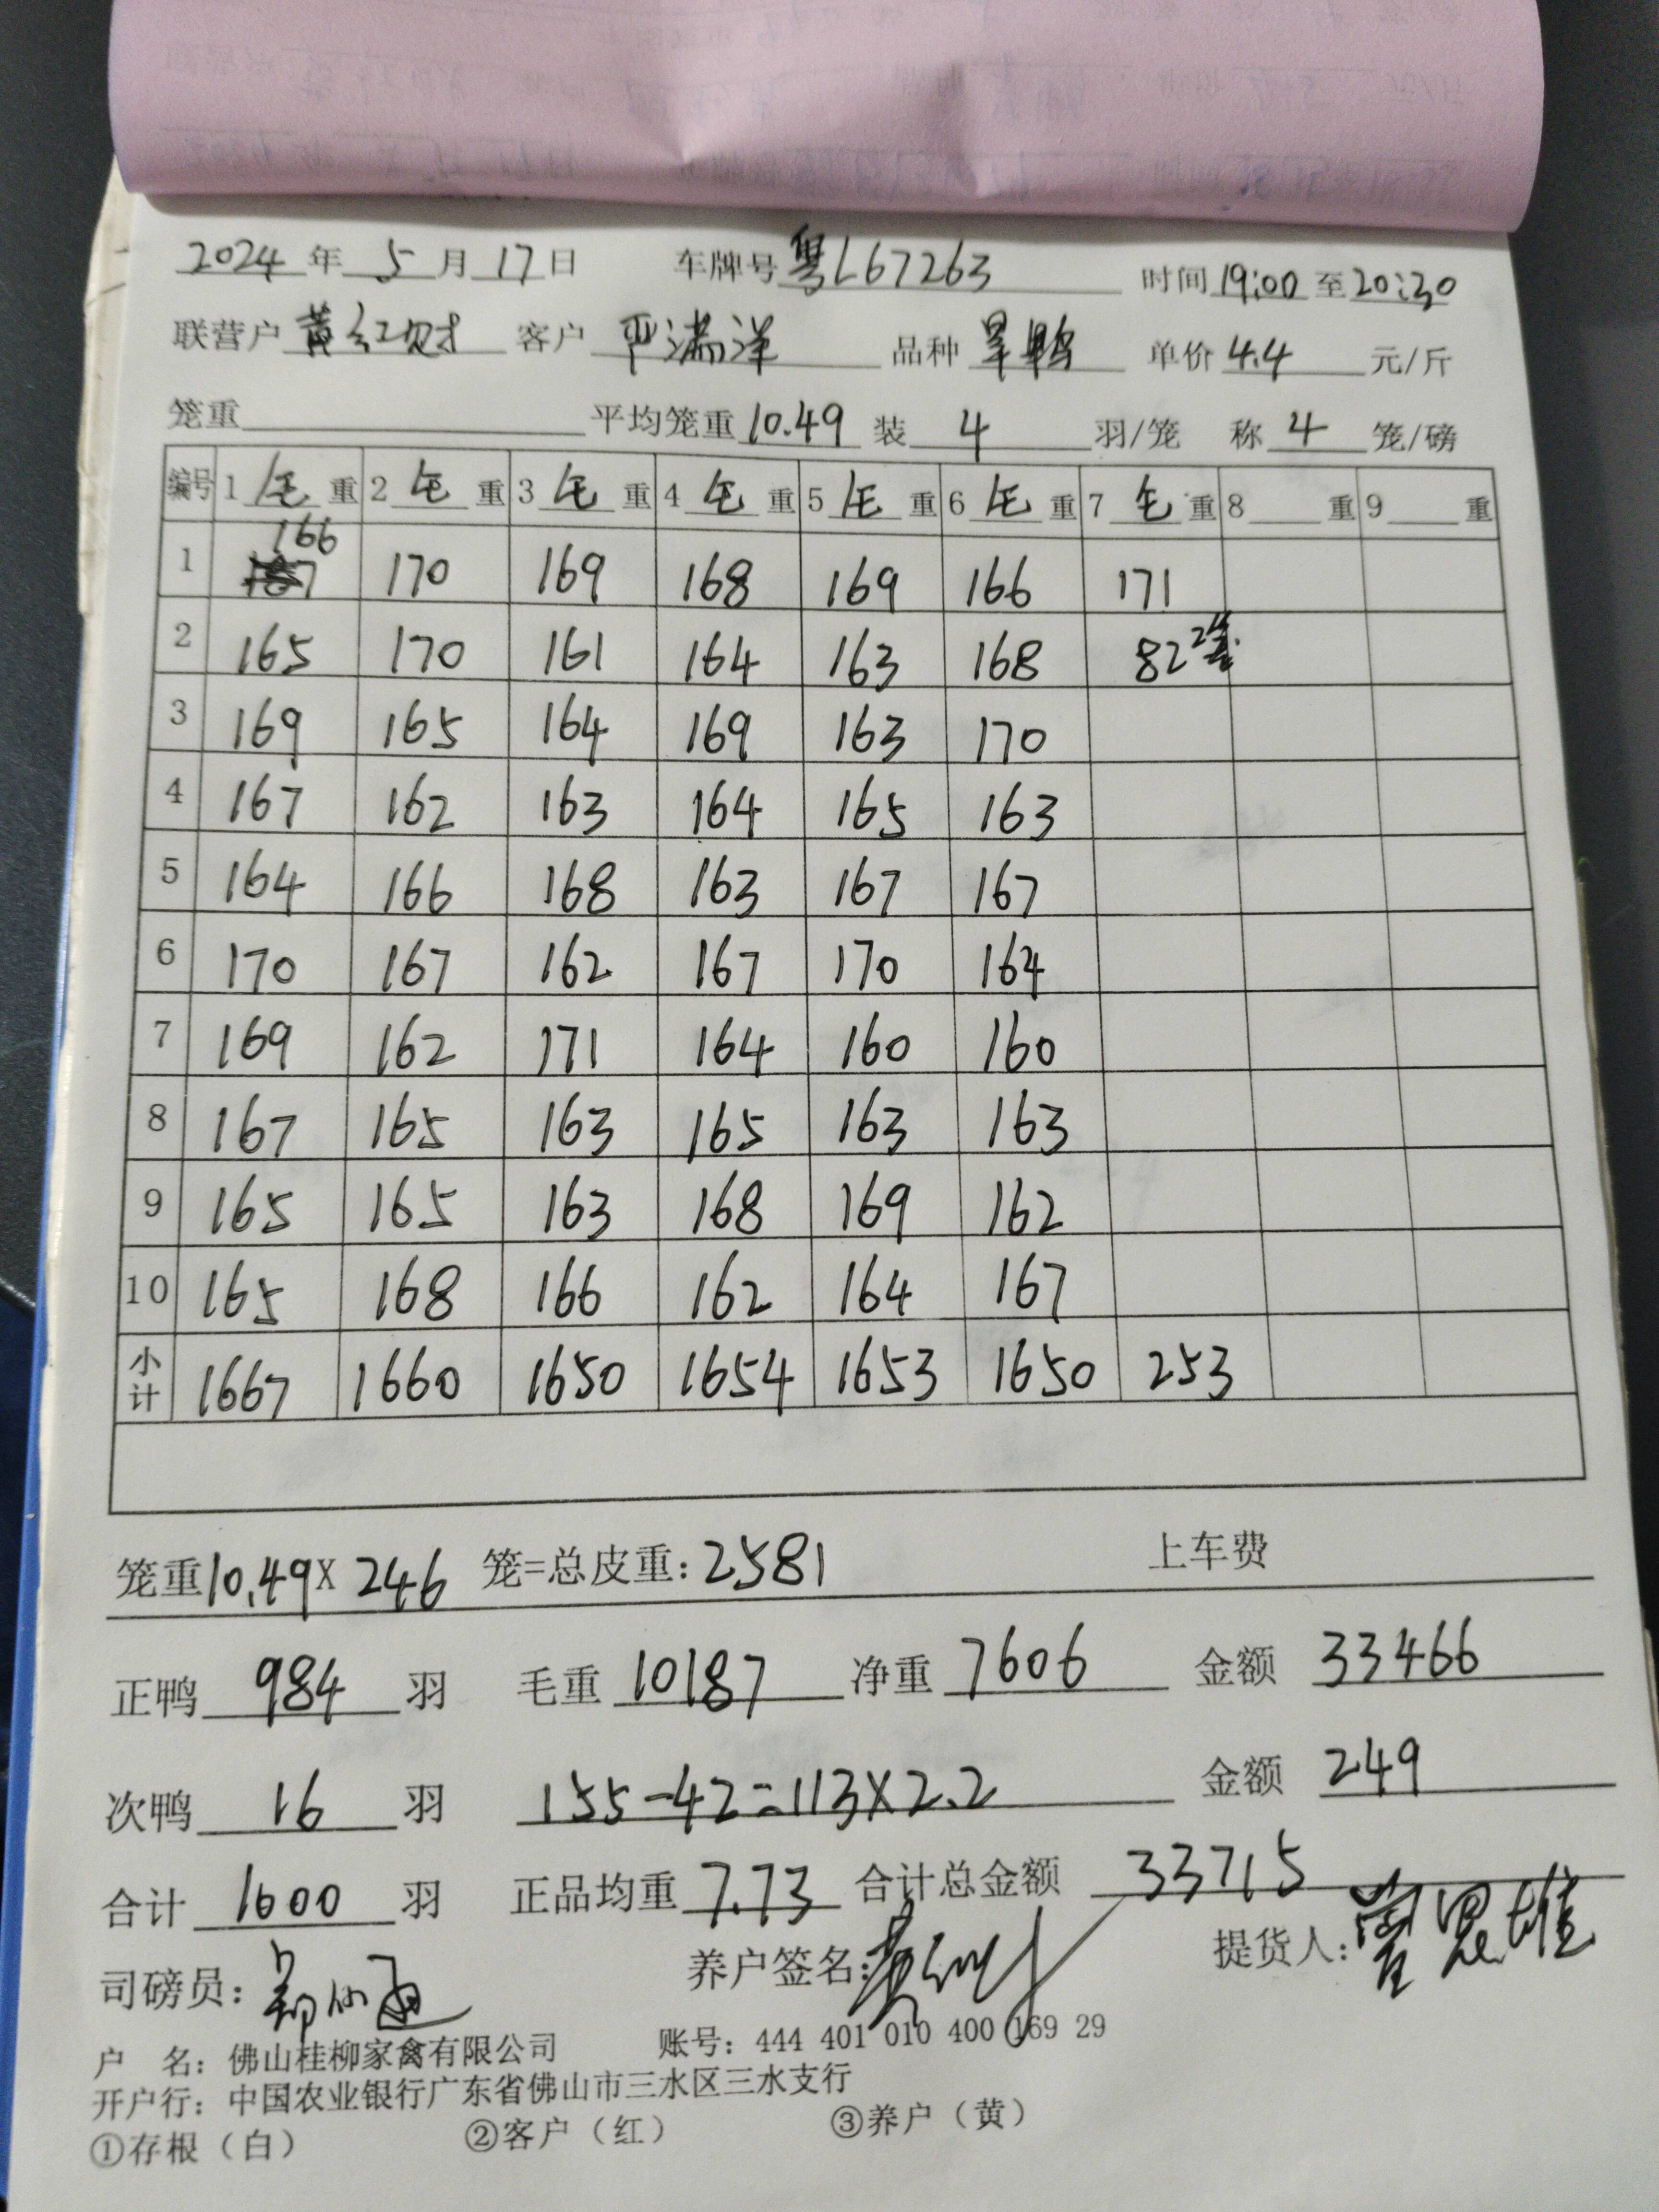 2024 年 5 月 17 日 车牌号 粤L67263 时间 19:00 至 20:30
联营户 黄红财 客户 严满洋 品种 旱鸭 单价 4.4 元/斤
笼重 平均笼重 10.49 装 4 羽/笼 称 4 笼/磅
编号 1 毛 重 2 毛 重 3 毛 重 4 毛 重 5 毛 重 6 毛 重 7 毛 重 8 重 9 重
1 166 170 169 168 169 166 171
2 165 170 161 164 163 168 82 2笼
3 169 165 164 169 163 170
4 167 162 163 164 165 163
5 164 166 168 163 167 167
6 170 167 162 167 170 164
7 169 162 171 164 160 160
8 167 165 163 165 163 163
9 165 165 163 168 169 162
10 165 168 166 162 164 167
小计 1667 1660 1650 1654 1653 1650 253
笼重 10.49 X 246 笼=总皮重: 2581 上车费
正鸭 984 羽 毛重 10187 净重 7606 金额 33466
次鸭 16 羽 155-42=113X2.2 金额 249
合计 1000 羽 正品均重 7.73 合计总金额 33715
司磅员: 养户签名: 提货人:
户 名: 佛山桂柳家禽有限公司 账号: 444 401 010 400 169 29
开户行: 中国农业银行广东省佛山市三水区三水支行
①存根（白） ②客户（红） ③养户（黄）